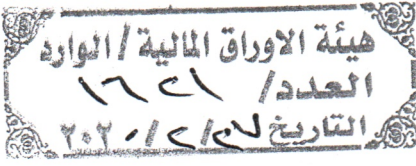 هيئة الاوراق المالية / الوارد
العدد / ١٦٢١
التاريخ ٢٠٢٠/٢/٢٧